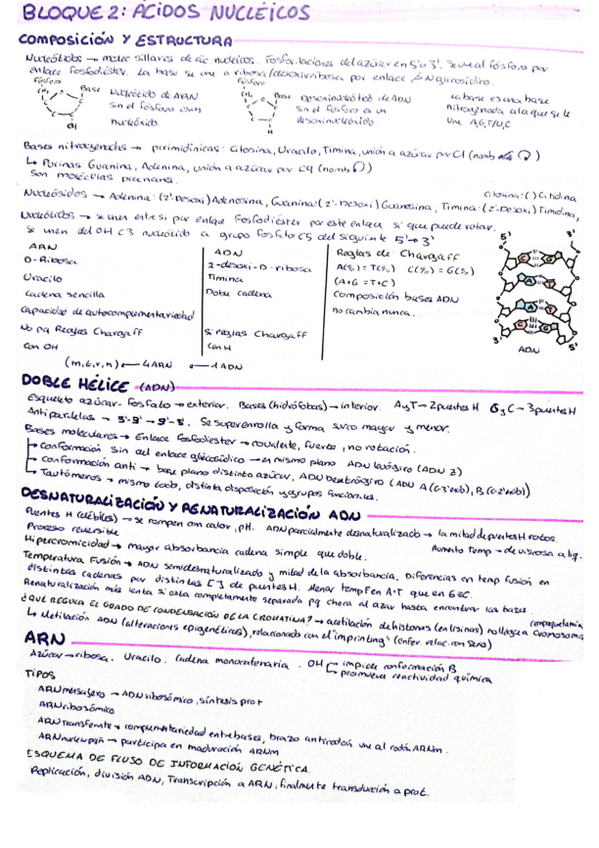 BLOQUE 2: ÁCIDOS NUCLÉICOS
COMPOSICIÓN Y ESTRUCTURA
Nucleótidos → molec sillares de ác nucleicos. Fosforilaciones del azúcar en 5' o 3'. Se une al fósforo por
enlace fosfodiéster. La base se une a ribosa/desoxirribosa por enlace β-N glicosídico.
Fósforo
Base
CH₂
OH
Nucleótido de ARN
sin el fósforo es un
nucleósido
Fósforo
CH₂
Base
Desoxinucleótido de ADN
sin el fósforo es un
desoxinucleósido
La base es una base
nitrogenada a la que se le
une A,G,T/U,C
Bases nitrogenadas → pirimidínicas: Citosina, Uracilo, Timina, unión a azúcar por C1
↳ Purinas: Guanina, Adenina, unión a azúcar por C9
Son moléculas planares.
Citosina: ( ) Citidina
Nucleósidos → Adenina: (2'-Desoxi) Adenosina, Guanina: (2'-Desoxi) Guanosina, Timina: (2'-Desoxi) Timidina,
Nucleótidos → se unen entre si por enlace Fosfodiéster por este enlace si que puede rotar.
Se unen del OH C3 nucleótido a grupo fosfato C5 del siguiente 5'→3'
ARN
D-Ribosa
Uracilo
Cadena sencilla
Capacidad de autocomplementariedad
No pq Reglas Chargaff
Con OH
ADN
2-desoxi-D-ribosa
Timina
Doble cadena
Si reglas Chargaff
Con H
(m,t,r,n) ← 4 ARN ← 1 ADN
Reglas de Chargaff
A(%) = T(%) C(%) = G(%)
(A+G = T+C)
Composición bases ADN
no cambia nunca.
5' 3'
C G
A T
A T
C G
3' 5'
ADN
DOBLE HÉLICE (ADN)
Esqueleto azúcar-fosfato → exterior. Bases (hidrófobas) → interior. A y T → 2 puentes H G y C → 3 puentes H
Antiparalelas → 5'-3' → 3'-5'. Se superenrolla y forma surco mayor y menor.
Bases moleculares → Enlace fosfodiester → covalente, fuerte, no rotación.
→ Conformación sin del enlace glicosídico → en mismo plano ADN levógiro (ADN Z)
→ Conformación anti → base plano distinto azúcar, ADN Dextrógiro (ADN A
→ Tautómeros → mismo todo, distinta disposición y grupos funcionales.
DESNATURALIZACIÓN Y RENATURALIZACIÓN ADN
Puentes H (débiles) → se rompen con calor, pH. ADN parcialmente desnaturalizado → la mitad de puentes H rotos.
Proceso reversible Aumento temp → de viscosa a líq.
Hipercromicidad → mayor absorbancia cadena simple que doble.
Temperatura Fusión → ADN semidesnaturalizado y mitad de la absorbancia. Diferencias en temp fusión en
distintas cadenas por distintas [ ] de puentes H. Menor temp F en A-T que en G≡C.
Renaturalización más lenta si esta completamente separada pq choca al azar hasta encontrar las bases.
¿QUÉ REGULA EL GRADO DE CONDENSACIÓN DE LA CROMATINA? → acetilación de histonas (en lisinas)
↳ Metilación ADN (alteraciones epigenéticas), relacionado con el "imprinting" (enfer. relac. con sexo)
ARN
Azúcar → ribosa. Uracilo. Cadena monocatenaria. OH impide conformación B
promueve reactividad química
TIPOS
ARN mensajero → ADN ribosómico, síntesis prot
ARN ribosómico
ARN transferente → complementariedad entre bases, brazo anticodón une al codón ARNm.
ARN nuclear pqñ → participa en maduración ARNm
ESQUEMA DE FLUJO DE INFORMACIÓN GENÉTICA.
Replicación, división ADN, Transcripción a ARN, finalmente transducción a prot.